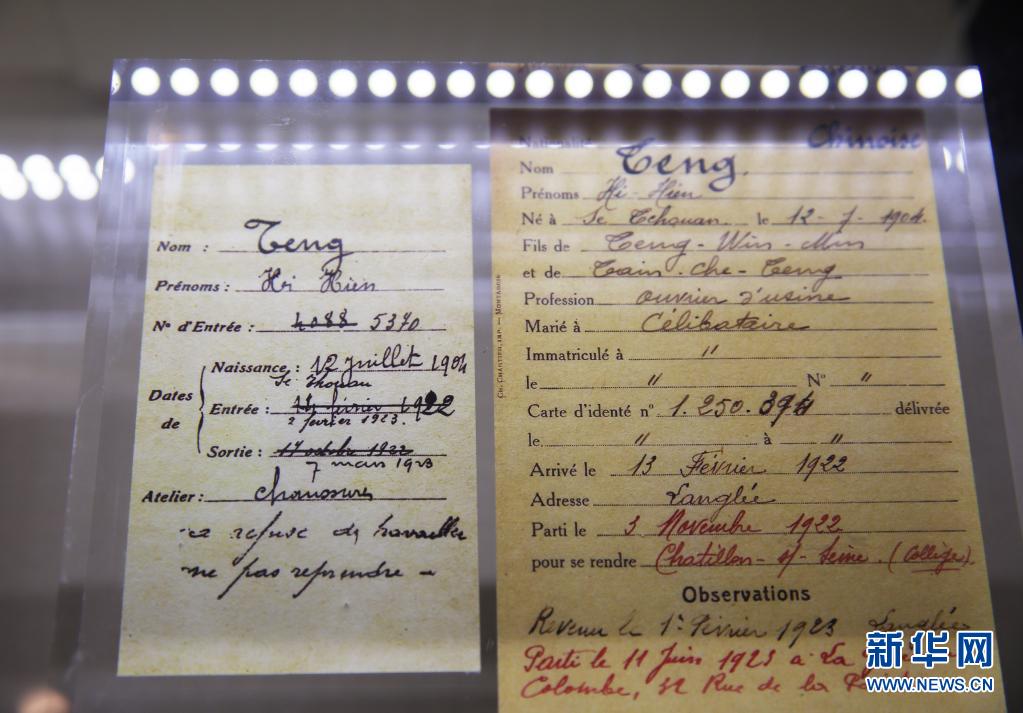 Nom : Teng
Prénoms : Hi Hien
N° d'Entrée : 4088 5370
Dates de
Naissance : 12 juillet 1904
Entrée : 14 février 1922
2 février 1923.
Sortie : 17 octobre 1922
7 mars 1923
Atelier : chaussures
a refusé de travailler
ne pas reprendre -
Nationalité Chinoise
Nom Teng.
Prénoms Hi-Hien
Né à Se Tchouan le 12-7-1904.
Fils de Teng-Win-Min
et de Tain-che-Teng
Profession ouvrier d'usine
Marié à Célibataire
Immatriculé à "
le " N° "
Carte d'identé n° 1.250.394 délivrée
le " à "
Arrivé le 13 Février 1922
Adresse Langlée
Parti le 3 Novembre 1922
pour se rendre Chatillon-s/-Seine. (Collège).
Observations
Revenu le 1er Février 1923 Langlée
Parti le 11 Juin 1923 a La
Colombe, 39 Rue de la
新华网
WWW.NEWS.CN